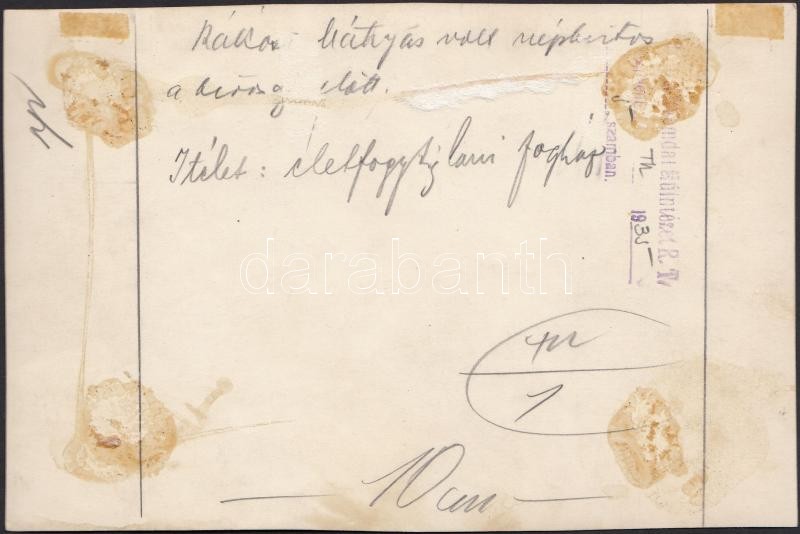 Rákosi Mátyás volt népbiztos
a bíróság előtt.
Itélet: életfogytiglani fogház
számban.
Tu
1935
Tu
1
10 cm
darabanth